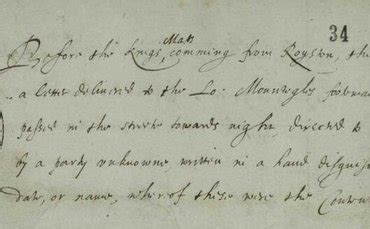 34
Mats
Before the Kings comming from Royston, the
a letter delivered to the Lo: Mountegles footman
passed in the streete towards night, directed to
by a party unknowne written in a hand disguise
date, or name, wherof these were the Conten